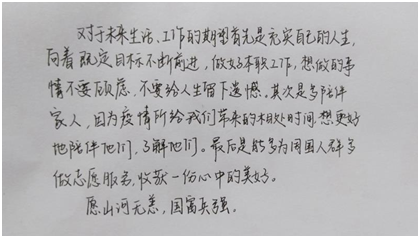 对于未来生活、工作的期望首先是充实自己的人生,
向着既定目标不断前进,做好本职工作,想做的事
情不要顾虑,不要给人生留下遗憾。其次是多陪伴
家人,因为疫情所给我们带来的相处时间,想更好
地陪伴他们,了解他们。最后是能多为周围人群多
做志愿服务,收获一份心中的美好。
愿山河无恙,国富兵强。